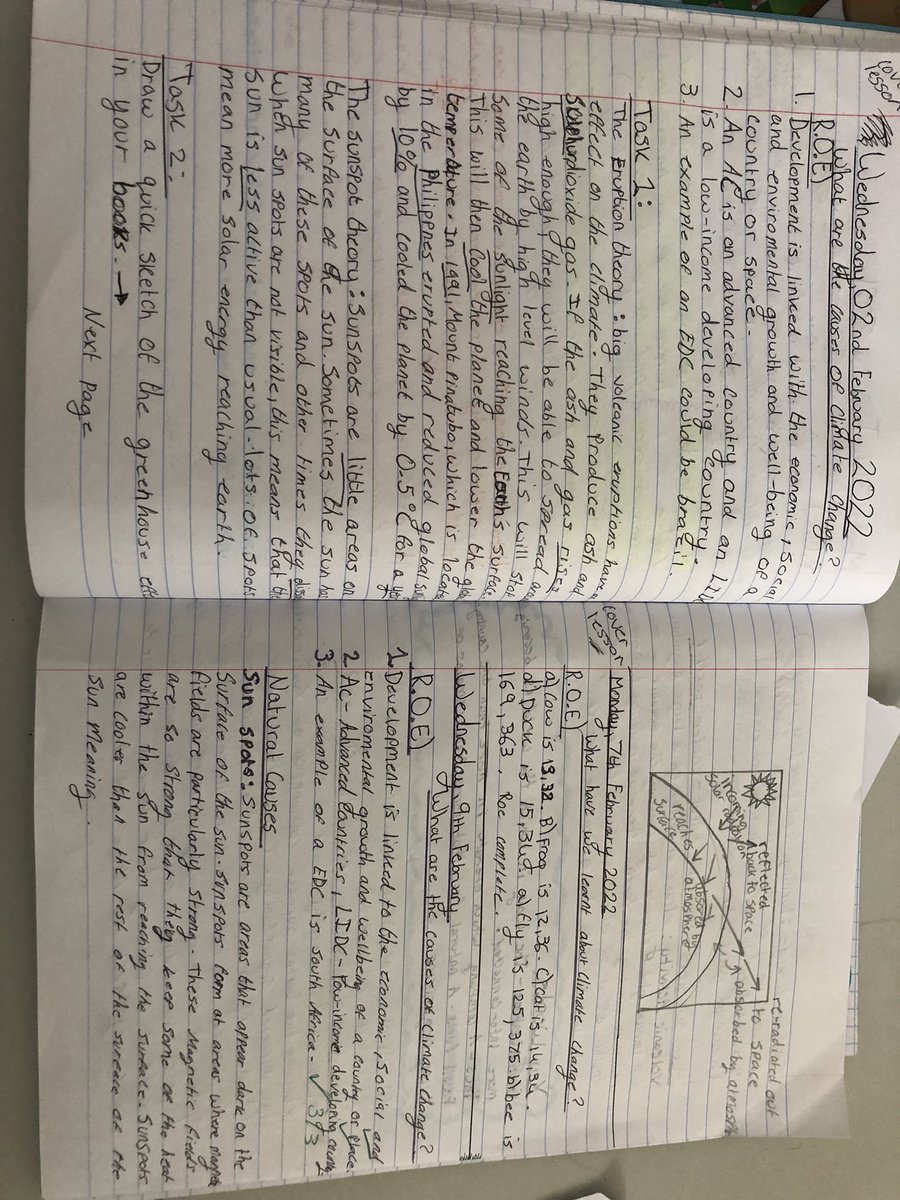 cover lesson
Wednesday 02nd Febuary 2022
What are the causes of climate change?
R.O.E)
1. Development is linked with the economic, social
and enviromental growth and well-being of a
country or space.
2. An AC is an advanced country and an
is a low-income developing country.
3. An example of an EDC could be brazil.
Task 1:
The Eruption theory: big volcanic eruptions have
effect on the climate. They produce ash and
gas. If the ash and gas rises
high enough, they will be able to spread
the earth by high level winds. This will stop
some of the sunlight reaching the Earth's surface
This will then cool the planet and lower the
temperature. In 1991, Mount Pinatubo, which is
in the Philippnes erupted and reduced global
by 10% and cooled the planet by 0.5°C for a
The sunspot theory: Sunspots are little areas on
the surface of the sun. Sometimes the sun has
many of these spots and other times they
When sun spots are not visible, this means that the
sun is less active than usual. lots of spots
mean more solar energy reaching earth.
Task 2:
Draw a quick sketch of the greenhouse
in your books. →
Next page
re-radiated out
to space
reflected
back to space
incoming
solar
absorbed by
absord by
atmosphere
reaches
surface
cover lesson
Monday, 7th February 2022
What have we learnt about climate change?
R.O.E)
a) Cow is 13,32. B) Frog is 12,36. C) Cat is 14,
d) Duck is 15, a) fly is 125,375. b) bee is
169,363. Roe complete.
Wednesday 9th February
What are the causes of climate change?
R.O.E)
1. Development is linked to the economic, social and
enviromental growth and wellbeing of a country or place.
2. Ac- Advanced Countries, LIDC- low-income developing
3. An example of a EDC is south Africa. ✓ 3/3
Natural Causes
Sun spots: Sunspots are areas that appear dark on the
Surface of the sun. sunspots form at areas where
fields are particularly strong. These Magnetic fields
are so strong that they keep some of the heat
within the sun from reaching the surface. Sunspots
are cooler than the rest of the surface of the
sun meaning.